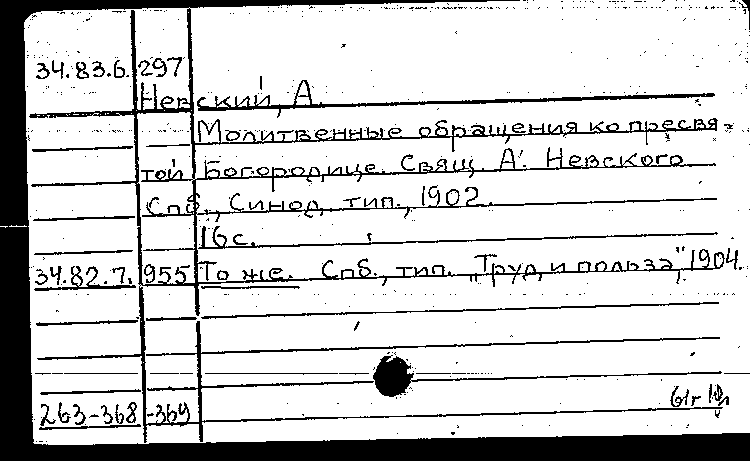 34.83.6. 297
Невский, А.
Молитвенные обращения ко пресвя-
той Богородице. Свящ. А. Невского
Спб., Синод. тип., 1902.
16 с.
34.82.7. 955 То же. Спб., тип. „Труд и польза", 1904.
263-368-369